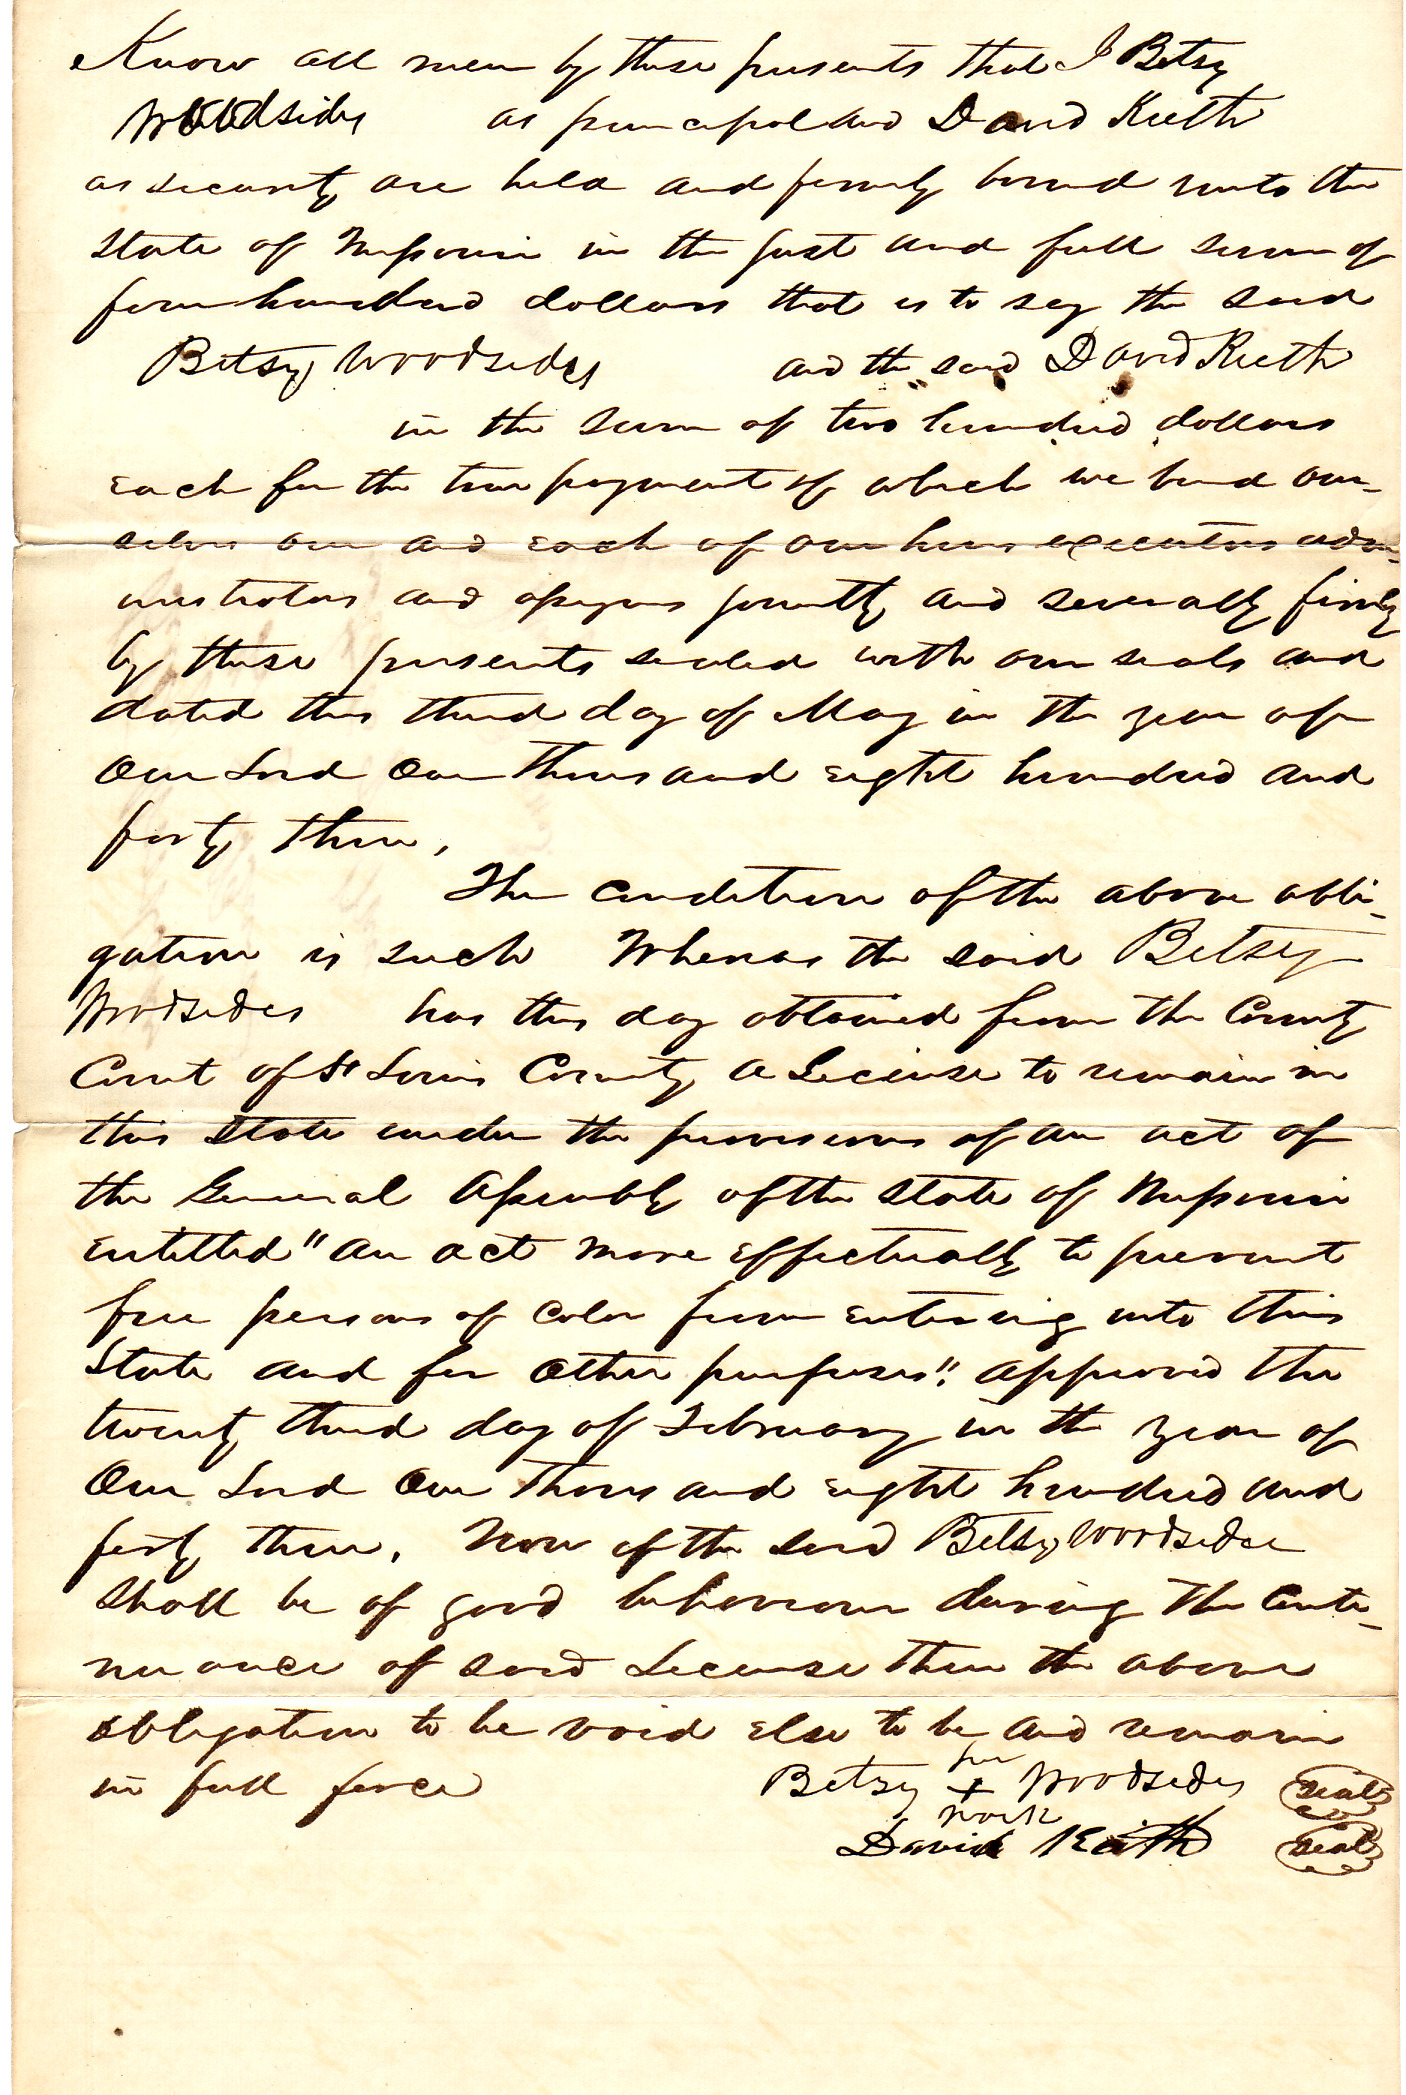 Know all men by these presents that I Betsy
Woodsides as principal and David Keith
as security are held and firmly bound unto the
State of Missouri in the just and full sum of
four hundred dollars that is to say the said
Betsy Woodsides and the said David Keith
in the sum of two hundred dollars
each for the true payment of which we bind our-
selves our and each of our heirs executors admi-
nistrators and assigns jointly and severally firmly
by these presents sealed with our seals and
dated this third day of May in the year of
Our Lord One thousand eight hundred and
forty three,
The condition of the above obli-
gation is such Whereas the said Betsy
Woodsides has this day obtained from the County
Court of St Louis County a License to remain in
this State under the provisions of an act of
the General Assembly of the State of Missouri
entitled "An act more effectually to prevent
free persons of color from entering into this
State and for other purposes". approved the
twenty third day of February in the year of
Our Lord One thousand eight hundred and
forty three. Now if the said Betsy Woodsides
shall be of good behaviour during the conti-
nuance of said License then the above
obligation to be void else to be and remain
in full force
Betsy her x mark Woodsides seal
David Keith seal